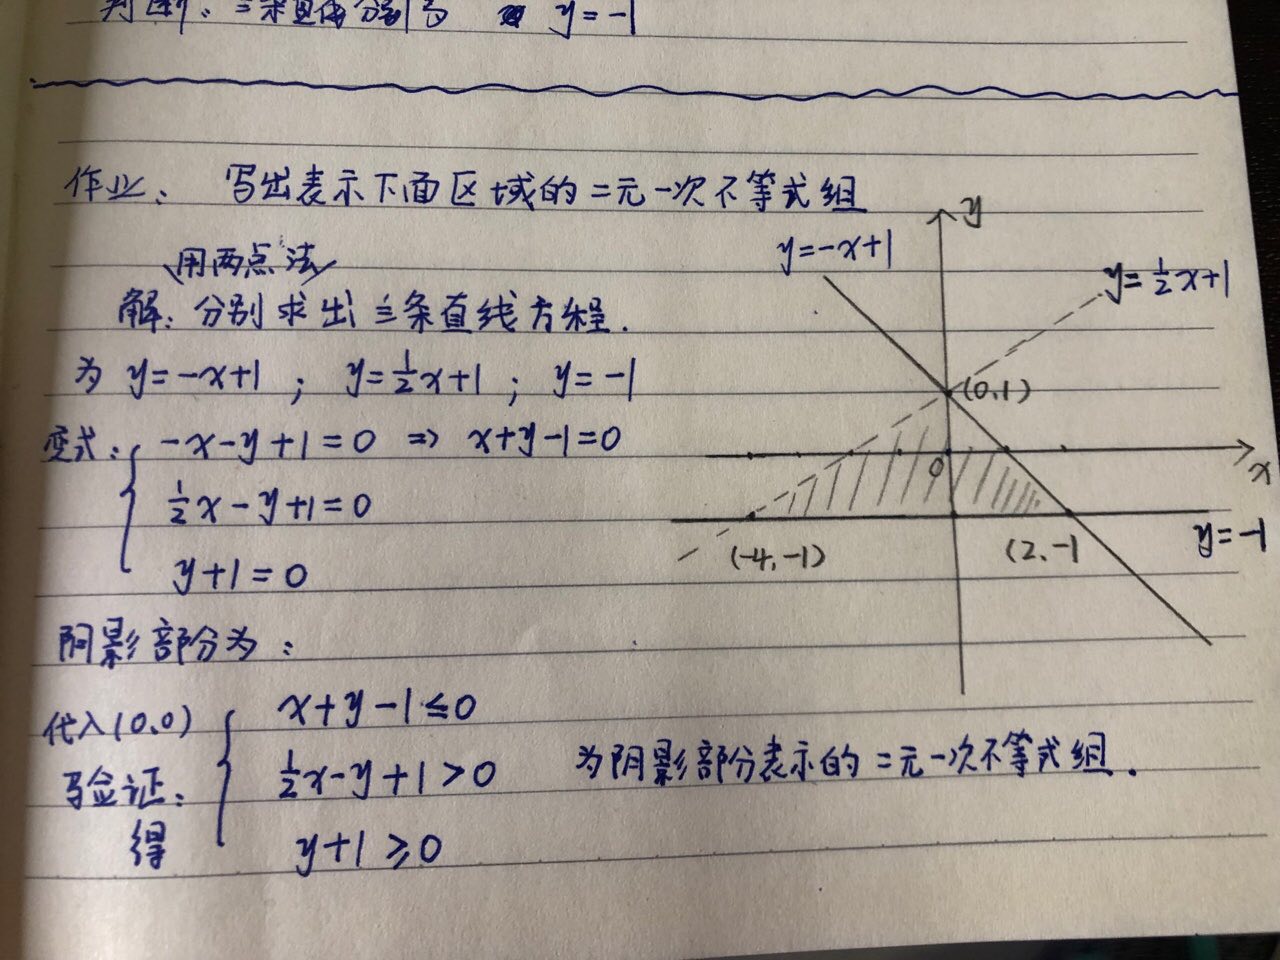 判断: 三条直线分别为 y=-1
作业: 写出表示下面区域的二元一次不等式组
用两点法
解: 分别求出三条直线方程.
为 y=-x+1 ; y=½x+1 ; y=-1
变式: -x-y+1=0 ⇒ x+y-1=0
½x-y+1=0
y+1=0
阴影部分为:
代入(0,0)
验证:
得
x+y-1≤0
½x-y+1>0 为阴影部分表示的二元一次不等式组.
y+1≥0
y
y=-x+1
y=½x+1
(0,1)
0
x
(-4,-1)
(2,-1
y=-1